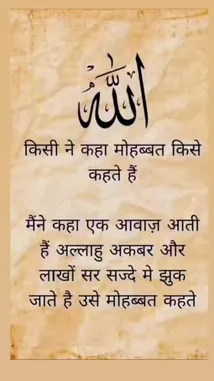 الله
किसी ने कहा मोहब्बत किसे
कहते हैं
मैंने कहा एक आवाज़ आती
हैं अल्लाहु अकबर और
लाखों सर सज्दे मे झुक
जाते है उसे मोहब्बत कहते